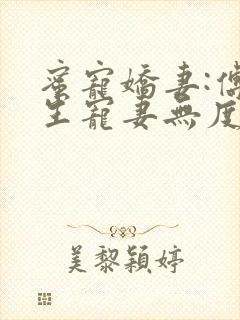 蜜寵嬌妻:傅
生寵妻無度
美黎穎婷